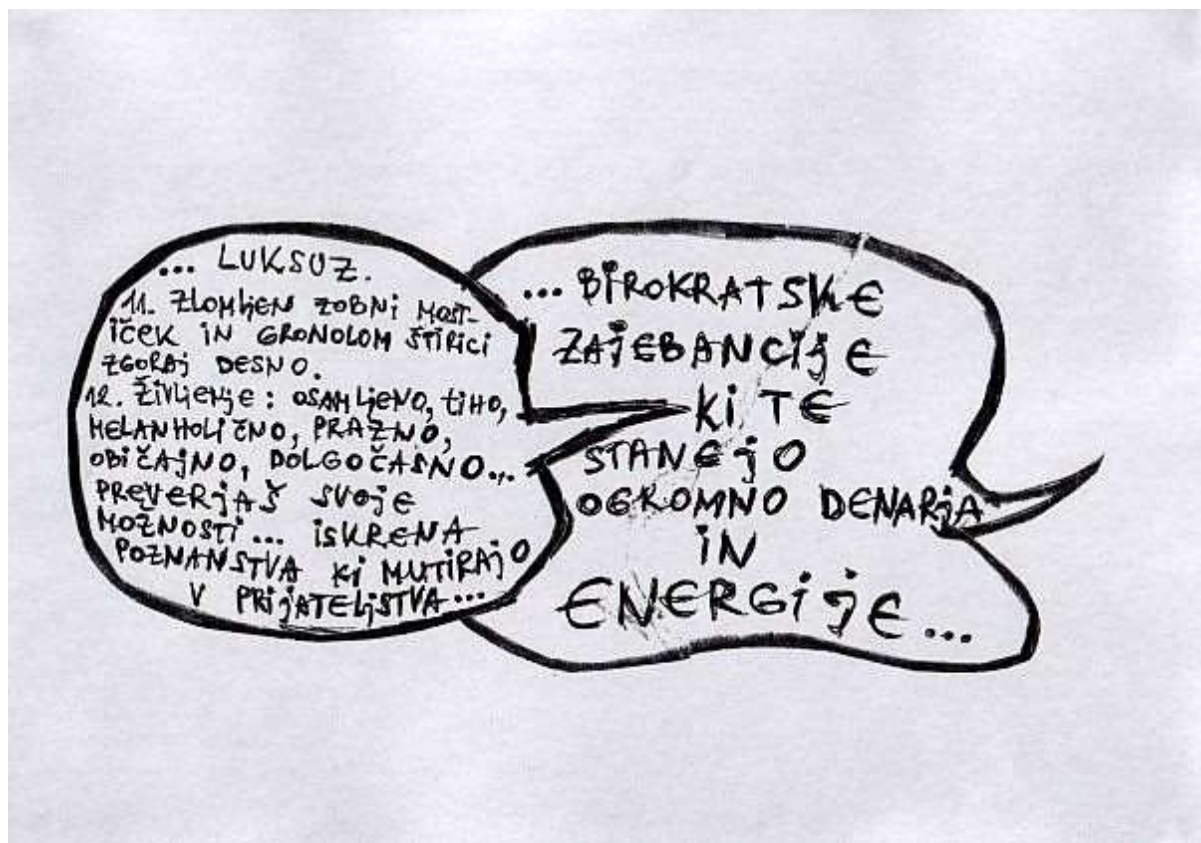 ... LUKSUZ.
11. ZLOMLJEN ZOBNI MOST-
IČEK IN GRONOLOM ŠTIRICI
ZGORAJ DESNO.
12. ŽIVLJENJE: OSAMLJENO, TIHO,
MELANHOLIČNO, PRAZNO,
OBIČAJNO, DOLGOČASNO...
PREVERJAŠ SVOJE
MOŽNOSTI... ISKRENA
POZNANSTVA KI MUTIRAJO
V PRIJATELJSTVA...
... BIROKRATSKE
ZAJEBANCIJE
KI TE
STANEJO
OGROMNO DENARJA
IN
ENERGIJE...